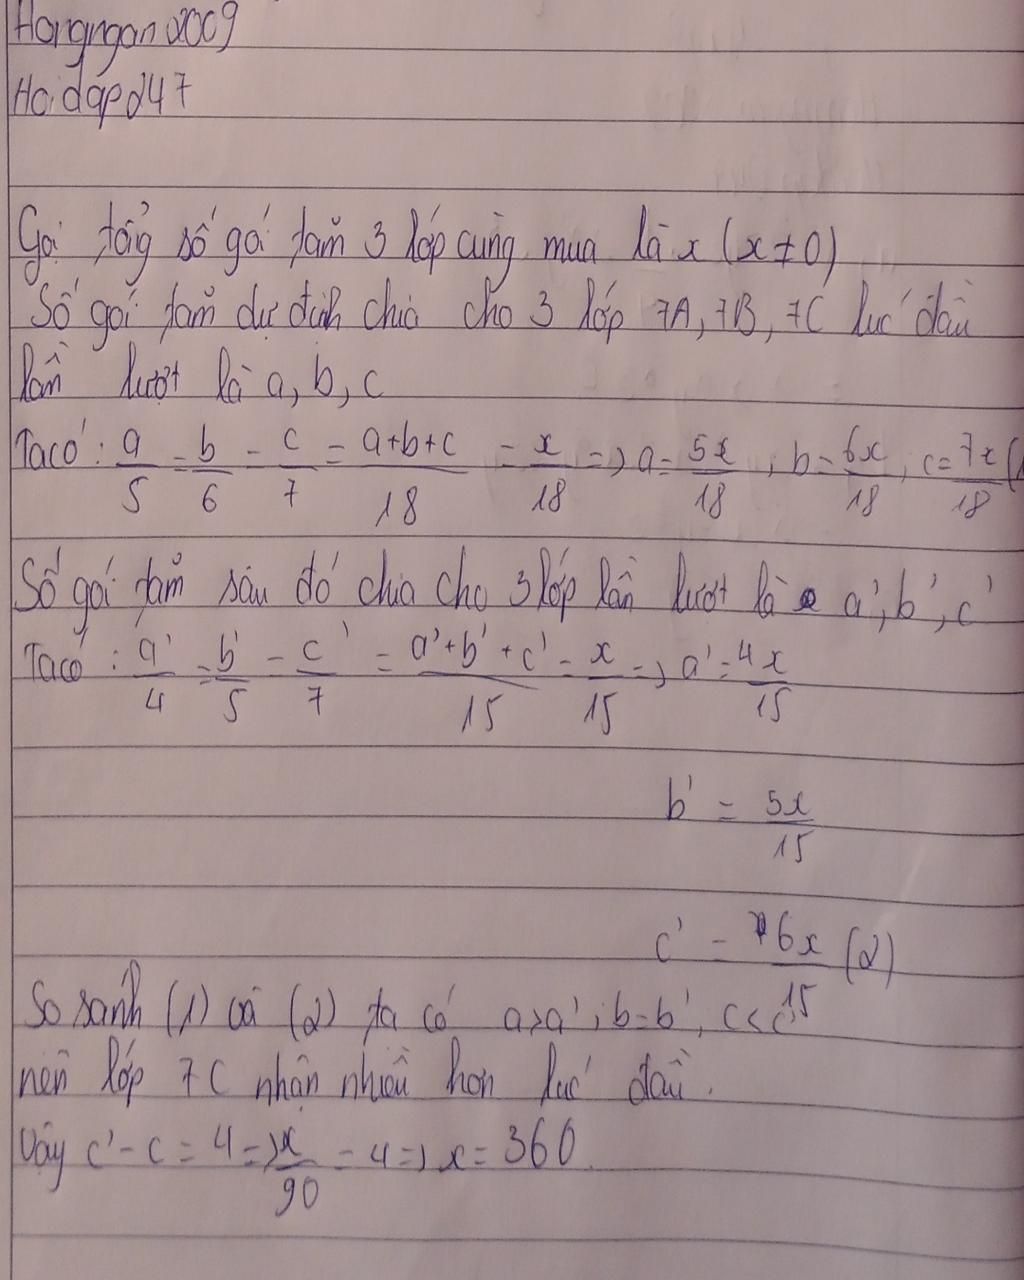 Hongngan2009
Hoidap247
Gọi tổng số gói tăm 3 lớp cùng mua là x (x ≠ 0)
Số gói tăm dự định chia cho 3 lớp 7A, 7B, 7C lúc đầu
lần lượt là a, b, c
Ta có: a/5 = b/6 = c/7 = a+b+c/18 = x/18 => a = 5x/18; b = 6x/18; c = 7x/18 (1
Số gói tăm sau đó chia cho 3 lớp lần lượt là a', b', c'
Ta có: a'/4 = b'/5 = c'/7 = a'+b'+c'/15 = x/15 => a' = 4x/15
b' = 5x/15
c' = 6x/15 (2)
So sánh (1) và (2) ta có a>a'; b=b', c<c'
nên lớp 7C nhận nhiều hơn lúc đầu.
Vậy c' - c = 4 => x/90 = 4 => x = 360.